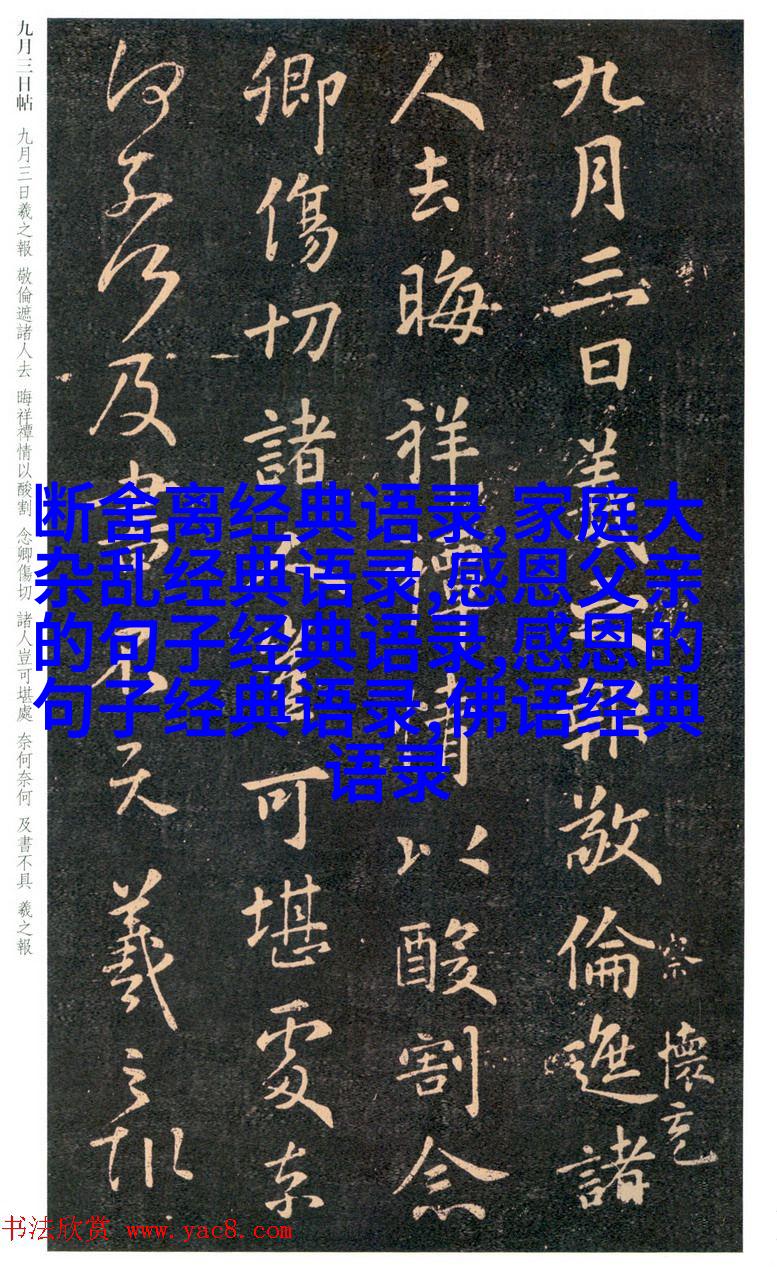 九月三日帖 九月三日羲之報 敬倫遮諸人去 晦祥禫情以酸割 念卿傷切 諸人豈可堪處 奈何奈何 及書不具 羲之報
九月三日羲之報敬倫遮諸
察 懷充
人去晦祥禫情以酸割念
卿傷切諸人豈可堪處奈
何奈何及書不具羲之報
断舍离经典语录,家庭大
杂乱经典语录,感恩父亲
的句子经典语录,感恩的
句子经典语录,佛语经典
语录
书法欣赏 www.yac8.com